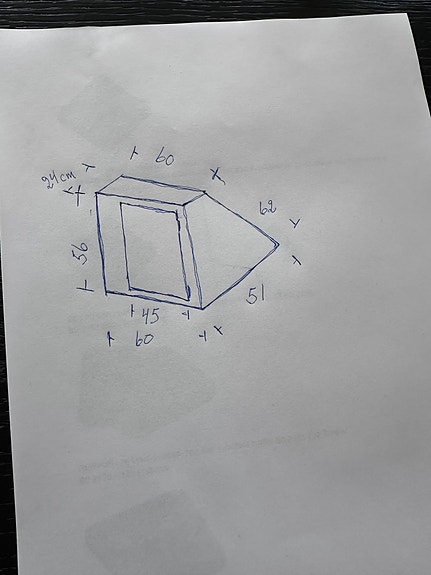 60
24cm
62
56
51
45
60